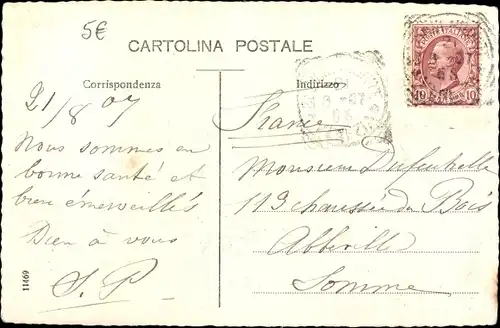 5€
CARTOLINA POSTALE
Corrispondenza
Indirizzo
POSTE ITALIANE
10 10
21/8 07
Nous sommes en
bonne santé et
bien émerveillés
Bien à vous
S. P.
France
Monsieur Dufestelle
113 chaussée du Bois
Abbeville
Somme
11469